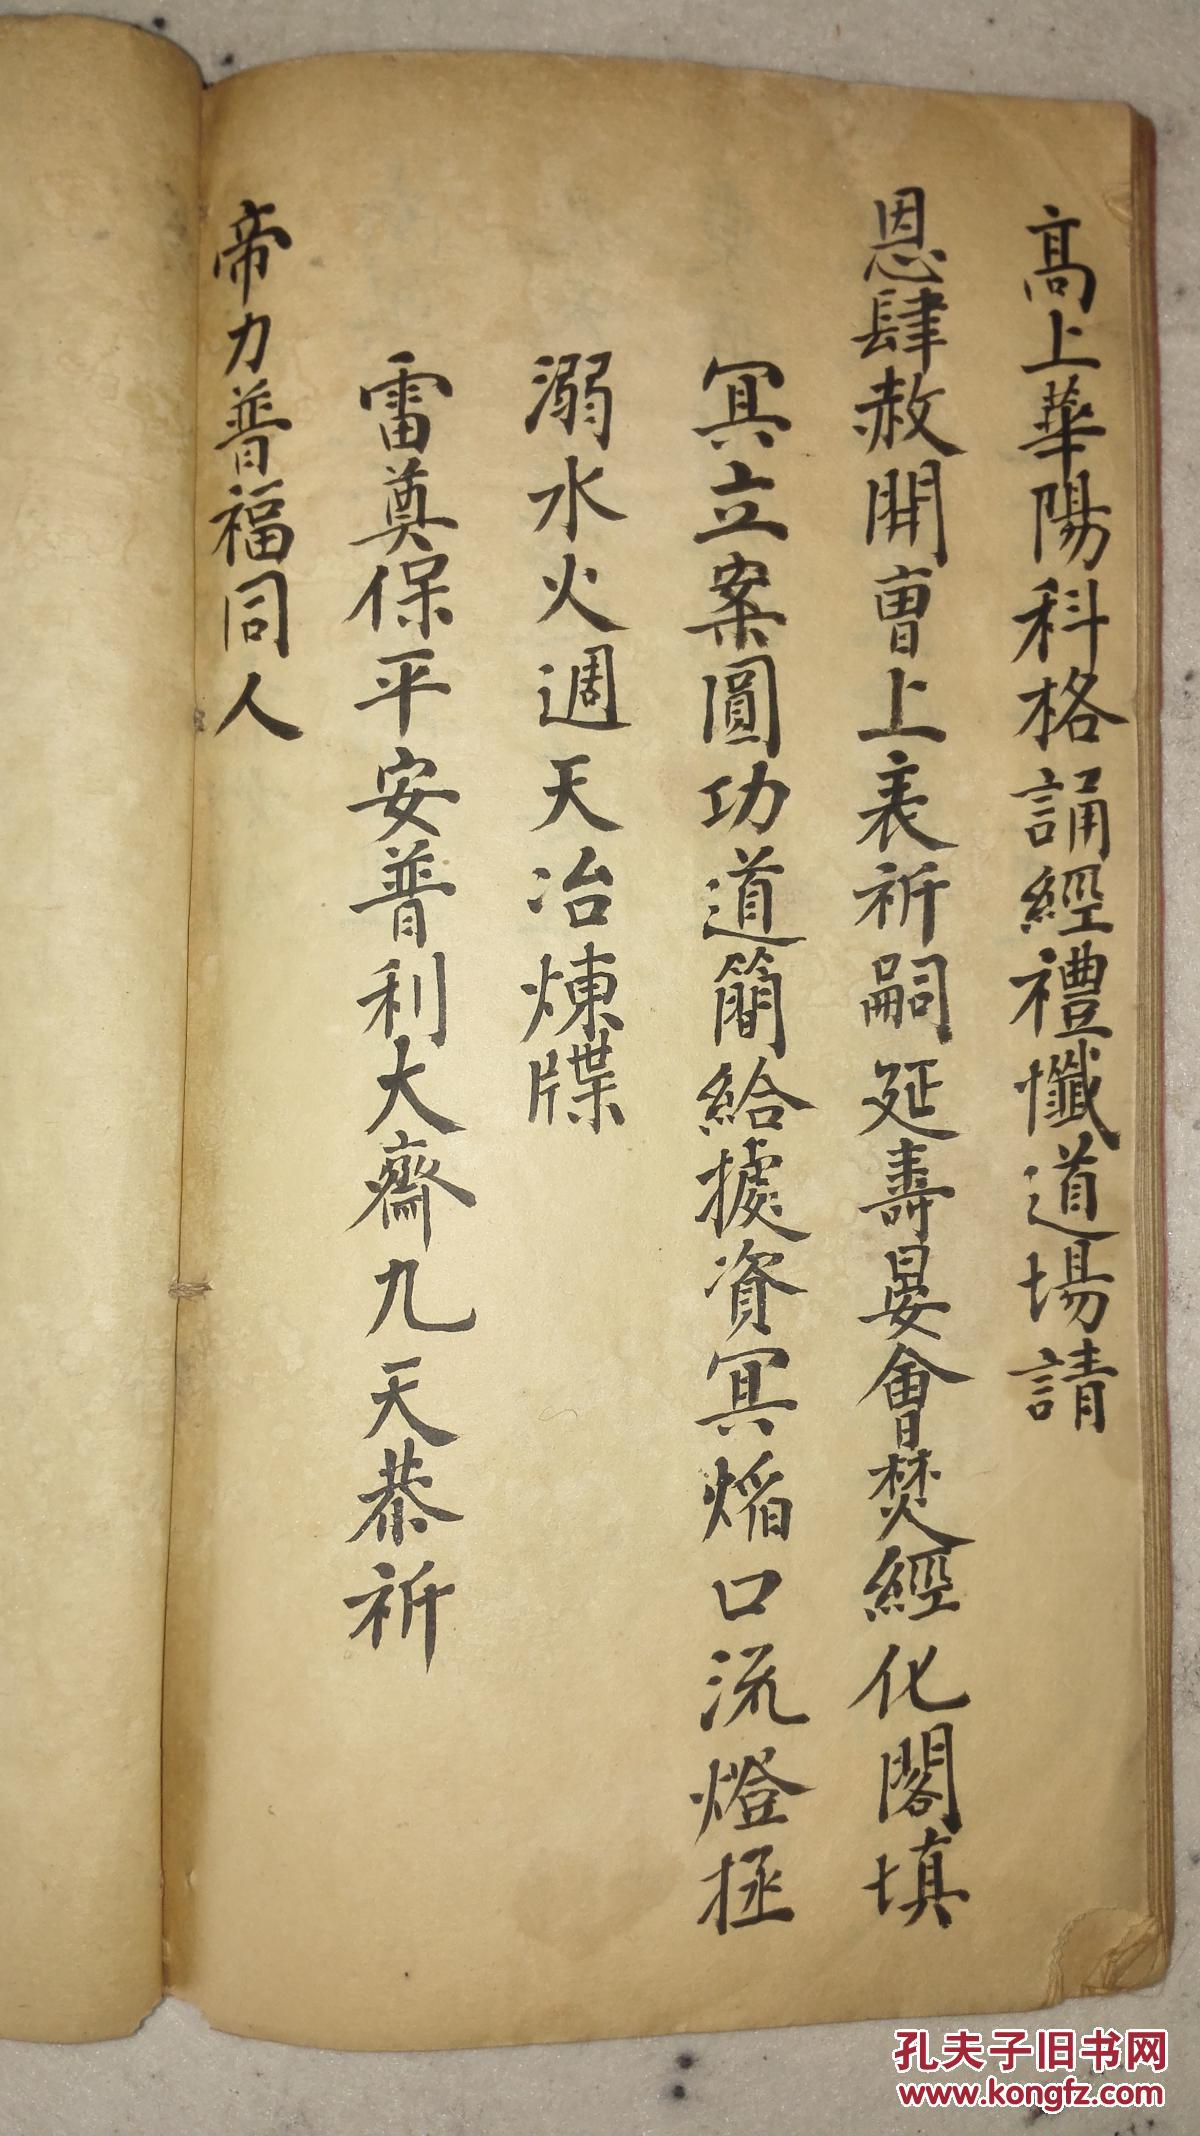 高上華陽科格誦經禮懺道場請
恩肆赦開曹上表祈嗣延壽晏會焚經化閣填
冥立案圓功道簡給據資冥焰口流燈拯
溺水火週天冶煉牒
雷奠保平安普利大齋九天恭祈
帝力普福同人
孔夫子旧书网
www.kongfz.com